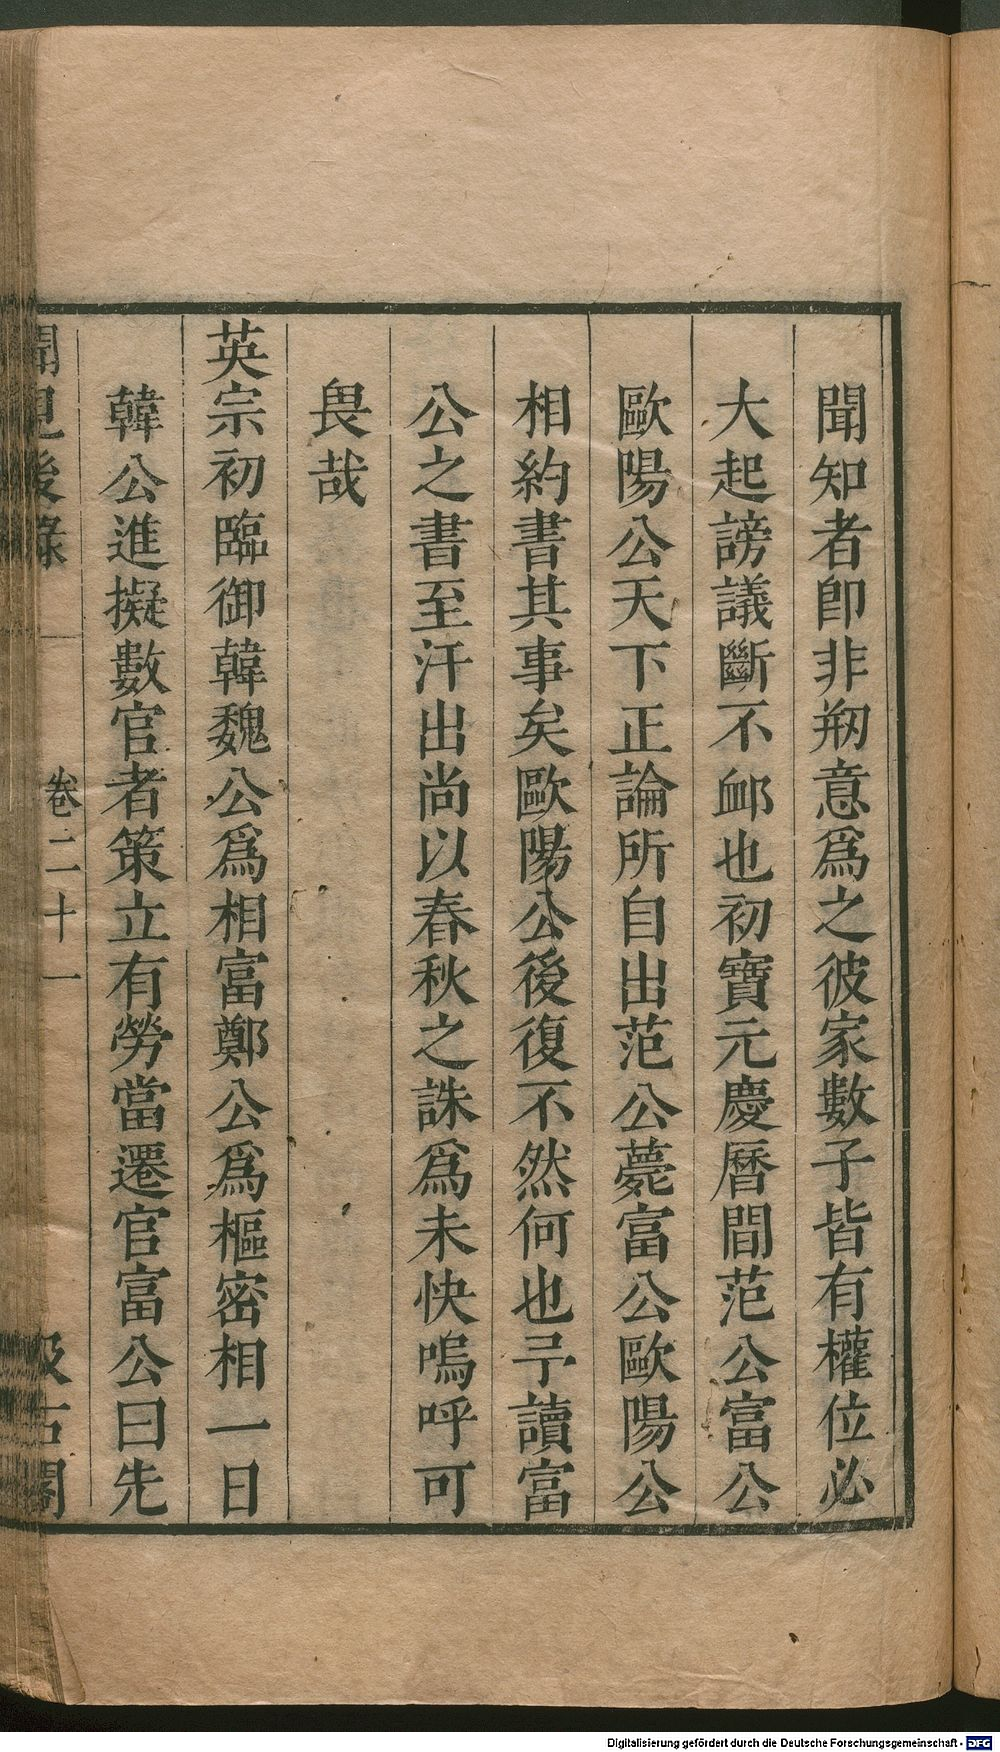 聞知者即非刱意爲之彼家數子皆有權位必
大起謗議斷不䘏也初寶元慶曆間范公富公
歐陽公天下正論所自出范公薨富公歐陽公
相約書其事矣歐陽公後復不然何也予讀富
公之書至汗出尚以春秋之誅爲未快嗚呼可
畏哉
英宗初臨御韓魏公爲相富鄭公爲樞密相一日
韓公進擬數官者策立有勞當遷官富公曰先
聞見後錄 卷二十一 汲古閣
Digitalisierung gefördert durch die Deutsche Forschungsgemeinschaft - DFG